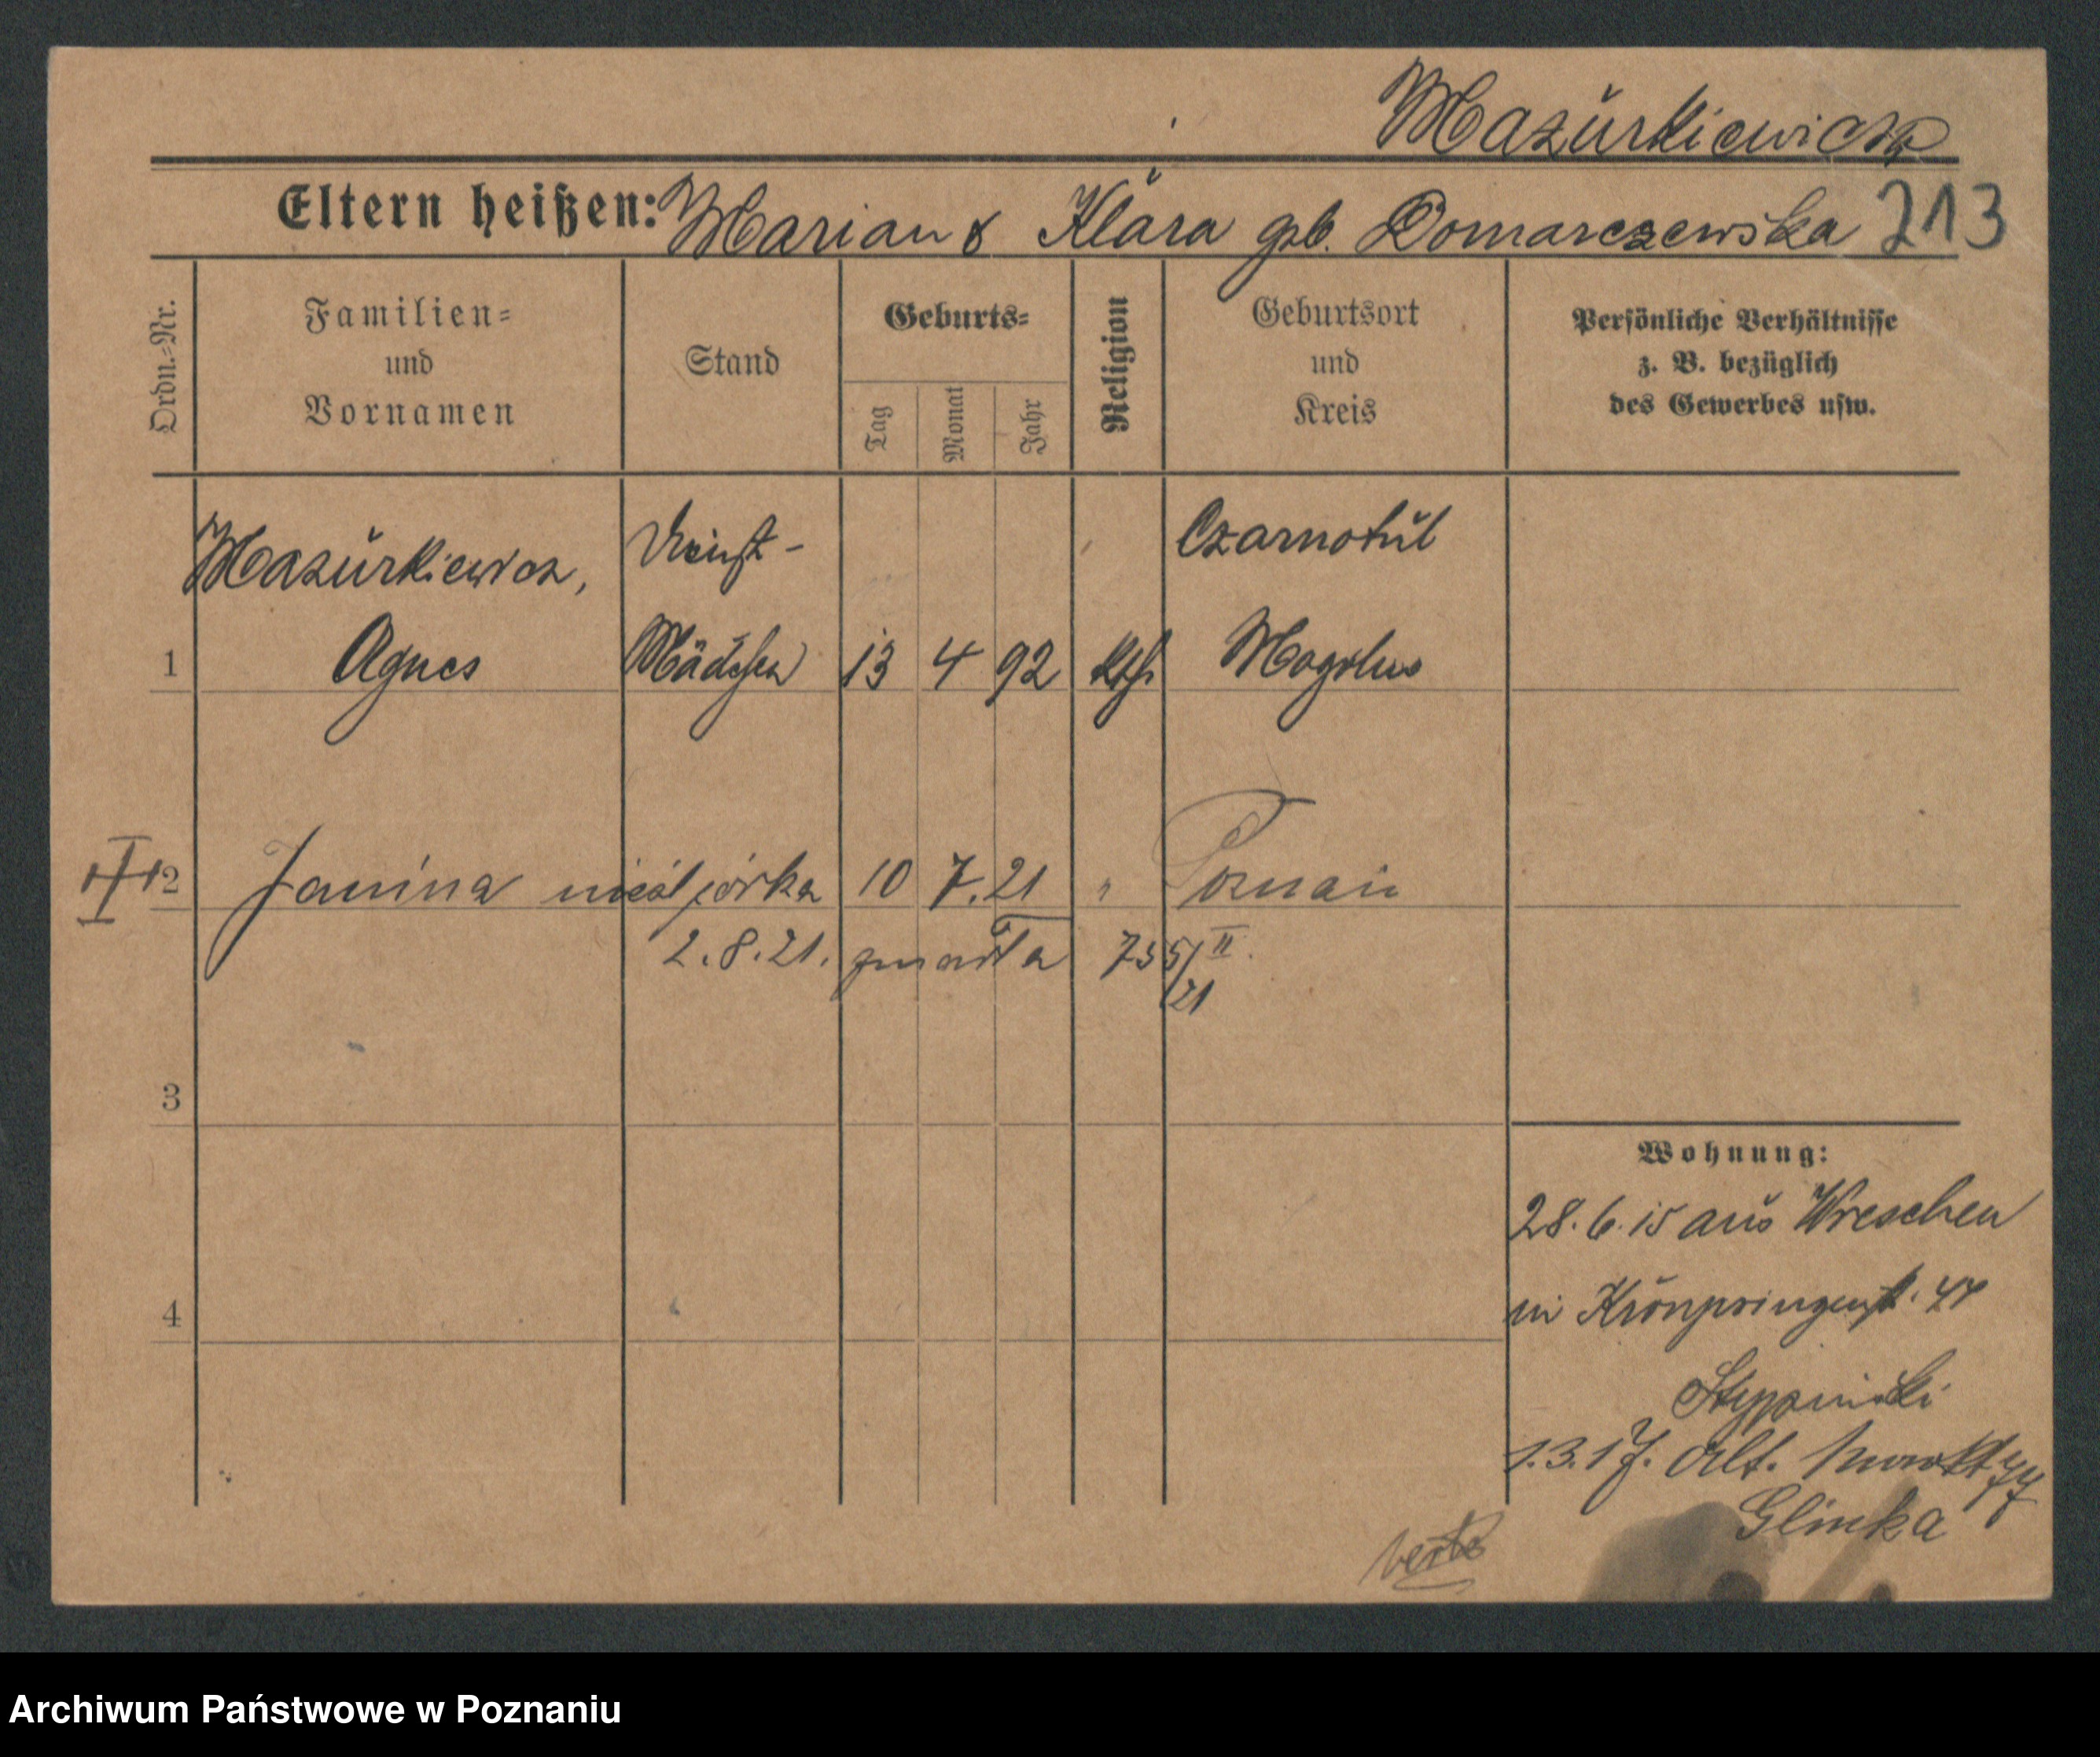 Mazurkiewicz
Eltern heißen: Marian & Klara geb. Domarczewska 213
Ordn.=Nr.
Familien=
und
Vornamen
Stand
Geburts=
Tag
Monat
Jahr
Religion
Geburtsort
und
Kreis
Persönliche Verhältnisse
z. B. bezüglich
des Gewerbes usw.
Mazurkiewicz, Dienst- Czarnotul
1 Agnes Mädchen 13 4 92 kth. Mogilno
2 Janina nieśl. córka 10 7. 21 " Poznań
2.8.21. zmarła 735/II.
21
3
Wohnung:
28.6.15 aus Wreschen
4
in Kronprinzenst. 44
Stypinski
1.3.17. Alt. Markt 77
Glinka
verte
Archiwum Państwowe w Poznaniu